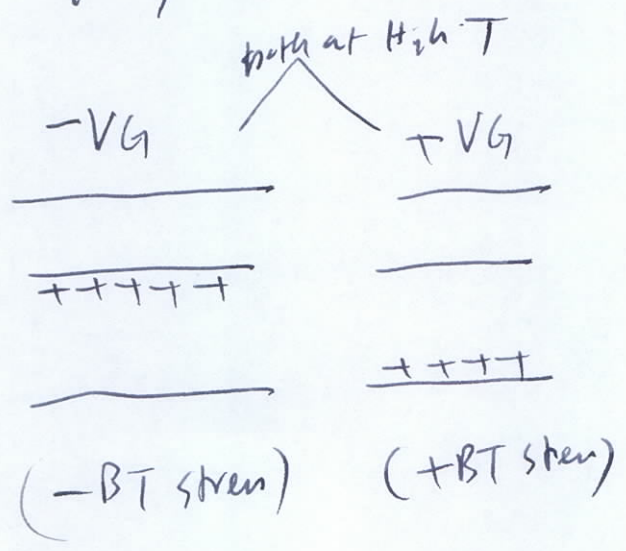 both at High T
-VG
+VG
+++++
++++
(-BT stress)
(+BT stress)